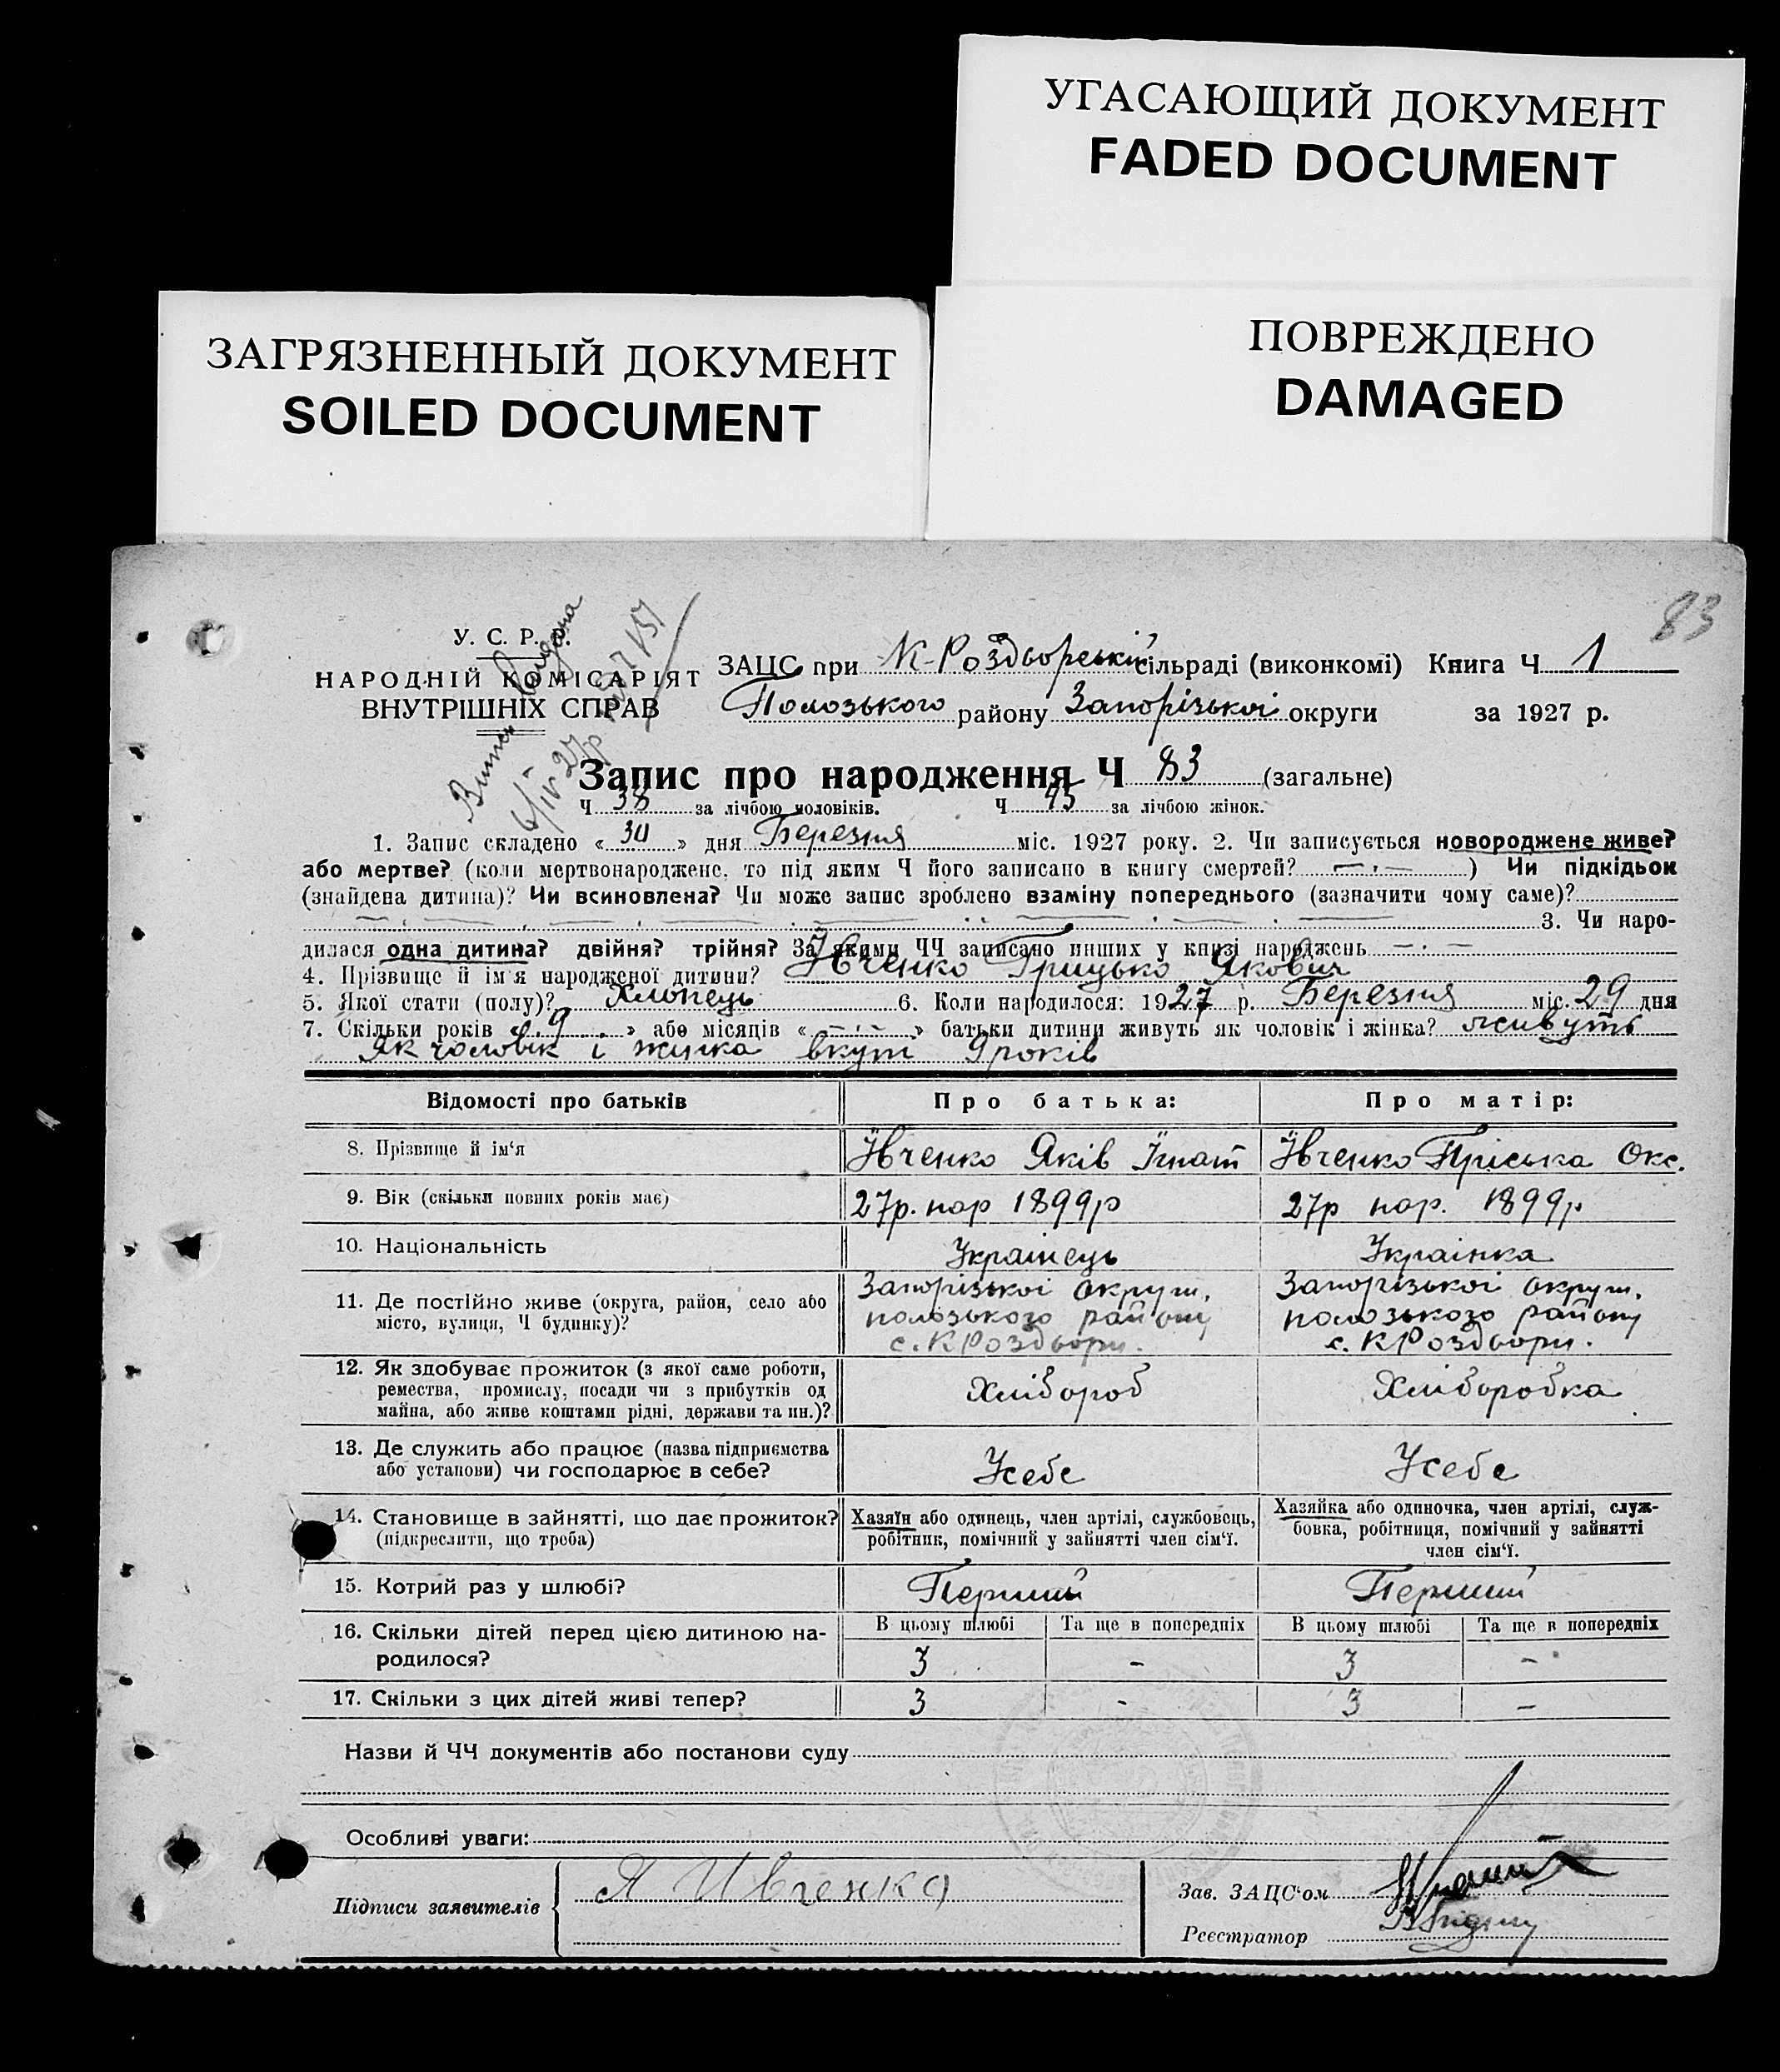 УГАСАЮЩИЙ ДОКУМЕНТ
FADED DOCUMENT
ЗАГРЯЗНЕННЫЙ ДОКУМЕНТ
SOILED DOCUMENT
ПОВРЕЖДЕНО
DAMAGED
83
У. С. Р. Р.
НАРОДНІЙ КОМІСАРІЯТ
ВНУТРІШНІХ СПРАВ
ЗАЦС при К-Роздорській сільраді (виконкомі) Книга Ч 1
Полозького району Запорізької округи за 1927 р.
Запис про народження Ч 83 (загальне)
Ч 38 за лічбою чоловіків. Ч 45 за лічбою жінок.
1. Запис складено « 30 » дня Березня міс. 1927 року. 2. Чи записується новороджене живе?
або мертве? (коли мертвонароджене, то під яким Ч його записано в книгу смертей? — . — ) Чи підкідьок
(знайдена дитина)? Чи всиновлена? Чи може запис зроблено взаміну попереднього (зазначити чому саме)?
3. Чи наро-
дилася одна дитина? двійня? трійня? За якими ЧЧ записано инших у книзі народжень — . —
4. Прізвище й ім'я народженої дитини? Івченко Грицько Якович
5. Якої стати (полу)? Хлопець 6. Коли народилося: 1927 р. Березня міс. 29 дня
7. Скільки років « 9 » або місяців « — . — » батьки дитини живуть як чоловік і жінка? живуть
Як чоловік і жінка вкупі 9 років
Відомості про батьків Про батька: Про матір:
8. Прізвище й ім'я Івченко Яків Ігнат Івченко Пріська Окс.
9. Вік (скільки повних років має) 27р. нар 1899р 27р нар. 1899р
10. Національність Українець Українка
11. Де постійно живе (округа, район, село або місто, вулиця, Ч будинку)?
Запорізької округи, полозького району с. К Роздори.
Запорізької округи, полозького району с. К Роздори.
12. Як здобуває прожиток (з якої саме роботи,
ремества, промислу, посади чи з прибутків од
майна, або живе коштами рідні, держави та ин.)?
Хлібороб Хліборобка
13. Де служить або працює (назва підприємства
або установи) чи господарює в себе?
Усебе Усебе
14. Становище в зайнятті, що дає прожиток?
(підкреслити, що треба)
Хазяїн або одинець, член артілі, службовець,
робітник, помічний у зайнятті член сім'ї.
Хазяйка або одиночка, член артілі, служ-
бовка, робітниця, помічний у зайнятті
член сім'ї.
15. Котрий раз у шлюбі? Перший Перший
В цьому шлюбі Та ще в попередніх В цьому шлюбі Та ще в попередніх
16. Скільки дітей перед цією дитиною на-
родилося? 3 - 3 -
17. Скільки з цих дітей живі тепер? 3 - 3 -
Назви й ЧЧ документів або постанови суду
Особливі уваги:
Підписи заявителів Я Ивченко
Зав. ЗАЦС'ом
Реєстратор